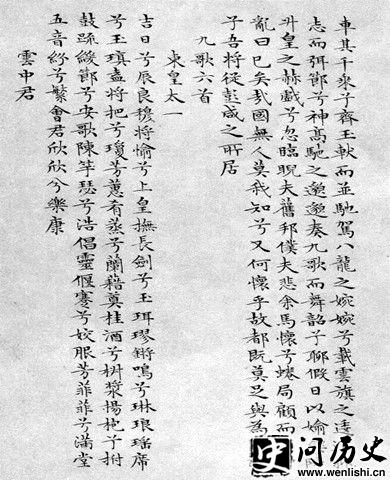 車其千乘兮齊玉軑而並馳駕八龍之婉婉兮載雲旗之逶
志而弭節兮神高馳之邈邈奏九歌而舞韶兮聊假日以媮
升皇之赫戲兮忽臨睨夫舊邦僕夫悲余馬懷兮蜷局顧而
亂曰已矣哉國無人莫我知兮又何懷乎故都既莫足與為
兮吾將從彭咸之所居
九歌六首
東皇太一
吉日兮辰良穆將愉兮上皇撫長劍兮玉珥璆鏘鳴兮琳琅瑤席
兮玉瑱盍將把兮瓊芳蕙肴蒸兮蘭藉奠桂酒兮椒漿揚枹兮拊
鼓疏緩節兮安歌陳竽瑟兮浩倡靈偃蹇兮姣服芳菲菲兮滿堂
五音紛兮繁會君欣欣兮樂康
雲中君
问历史
www.wenlishi.cn